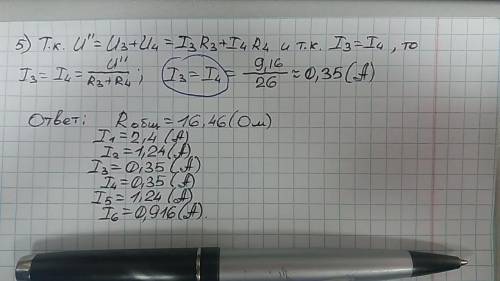 5) Т.к. U" = U₃+U₄ = I₃R₃+I₄R₄ и т.к. I₃=I₄, то
I₃ = I₄ = U"/(R₃+R₄); I₃ = I₄ = 9,16/26 ≈ 0,35 (А)
Ответ: Rобщ = 16,46 (Ом)
I₁ = 2,4 (А)
I₂ = 1,24 (А)
I₃ = 0,35 (А)
I₄ = 0,35 (А)
I₅ = 1,24 (А)
I₆ = 0,916 (А).